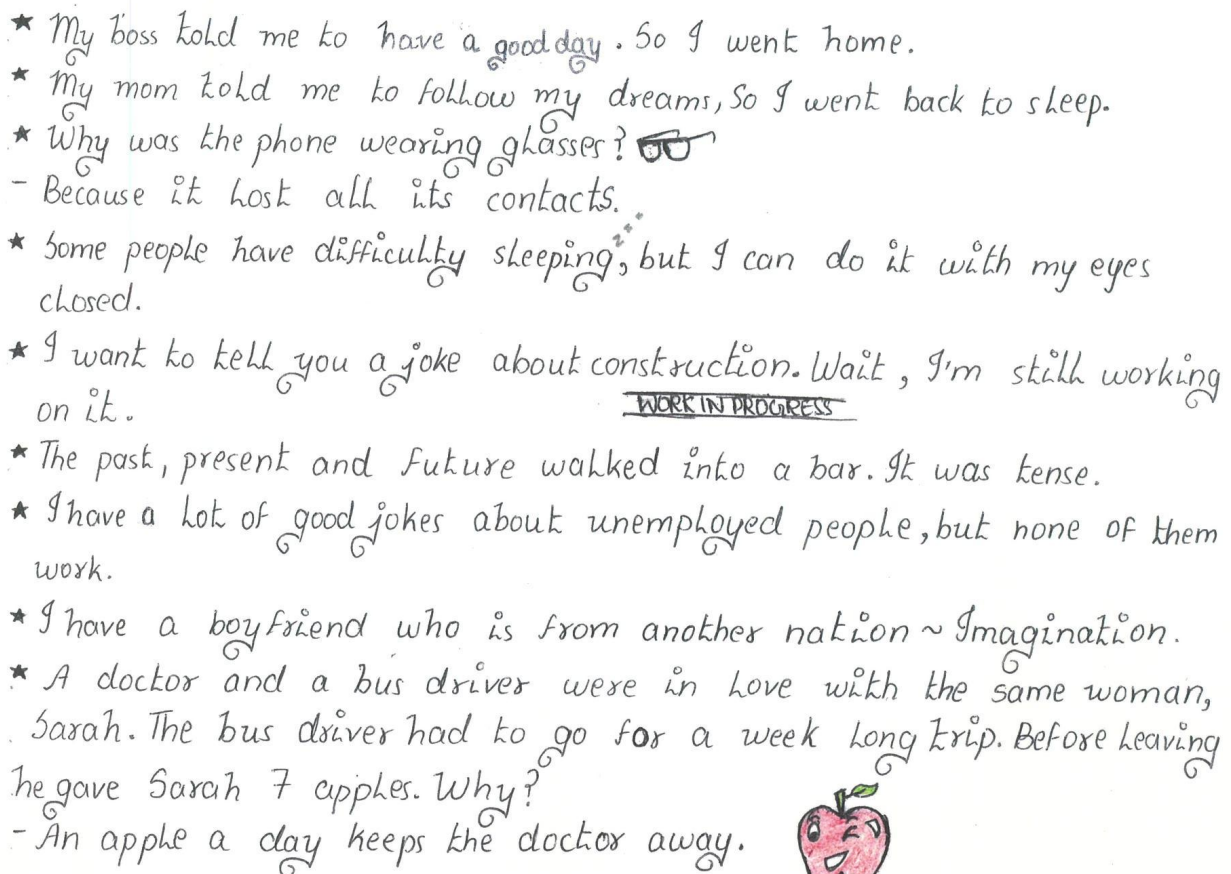 ★ My boss told me to have a good day. So I went home.
★ My mom told me to follow my dreams, So I went back to sleep.
★ Why was the phone wearing glasses?
- Because it lost all its contacts.
zzz
★ Some people have difficulty sleeping, but I can do it with my eyes
closed.
★ I want to tell you a joke about construction. Wait, I'm still working
on it.
WORK IN PROGRESS
★ The past, present and future walked into a bar. It was tense.
★ I have a lot of good jokes about unemployed people, but none of them
work.
★ I have a boyfriend who is from another nation ~ Imagination.
★ A doctor and a bus driver were in love with the same woman,
Sarah. The bus driver had to go for a week long trip. Before leaving
he gave Sarah 7 apples. Why?
- An apple a day keeps the doctor away.